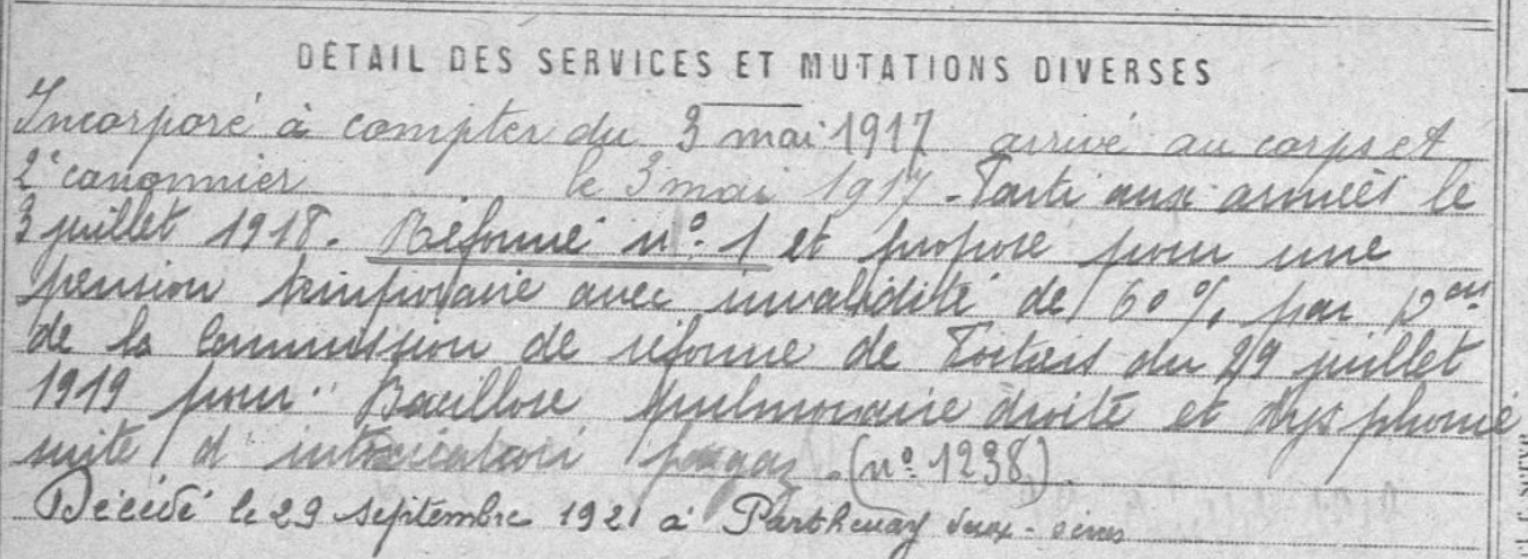 DÉTAIL DES SERVICES ET MUTATIONS DIVERSES
Incorporé à compter du 3 mai 1917 arrivé au corps et
2e canonnier le 3 mai 1917 - Parti aux armées le
3 juillet 1918. Réformé n° 1 et proposé pour une
pension temporaire avec invalidité de 60 % par Don
de la Commission de réforme de du 29 juillet
1919 pour " Bacillose pulmonaire droite et dysphonie
suite d'intoxication par gaz. (n° 1238).
Décédé le 29 septembre 1921 à Parthenay Deux-Sèvres